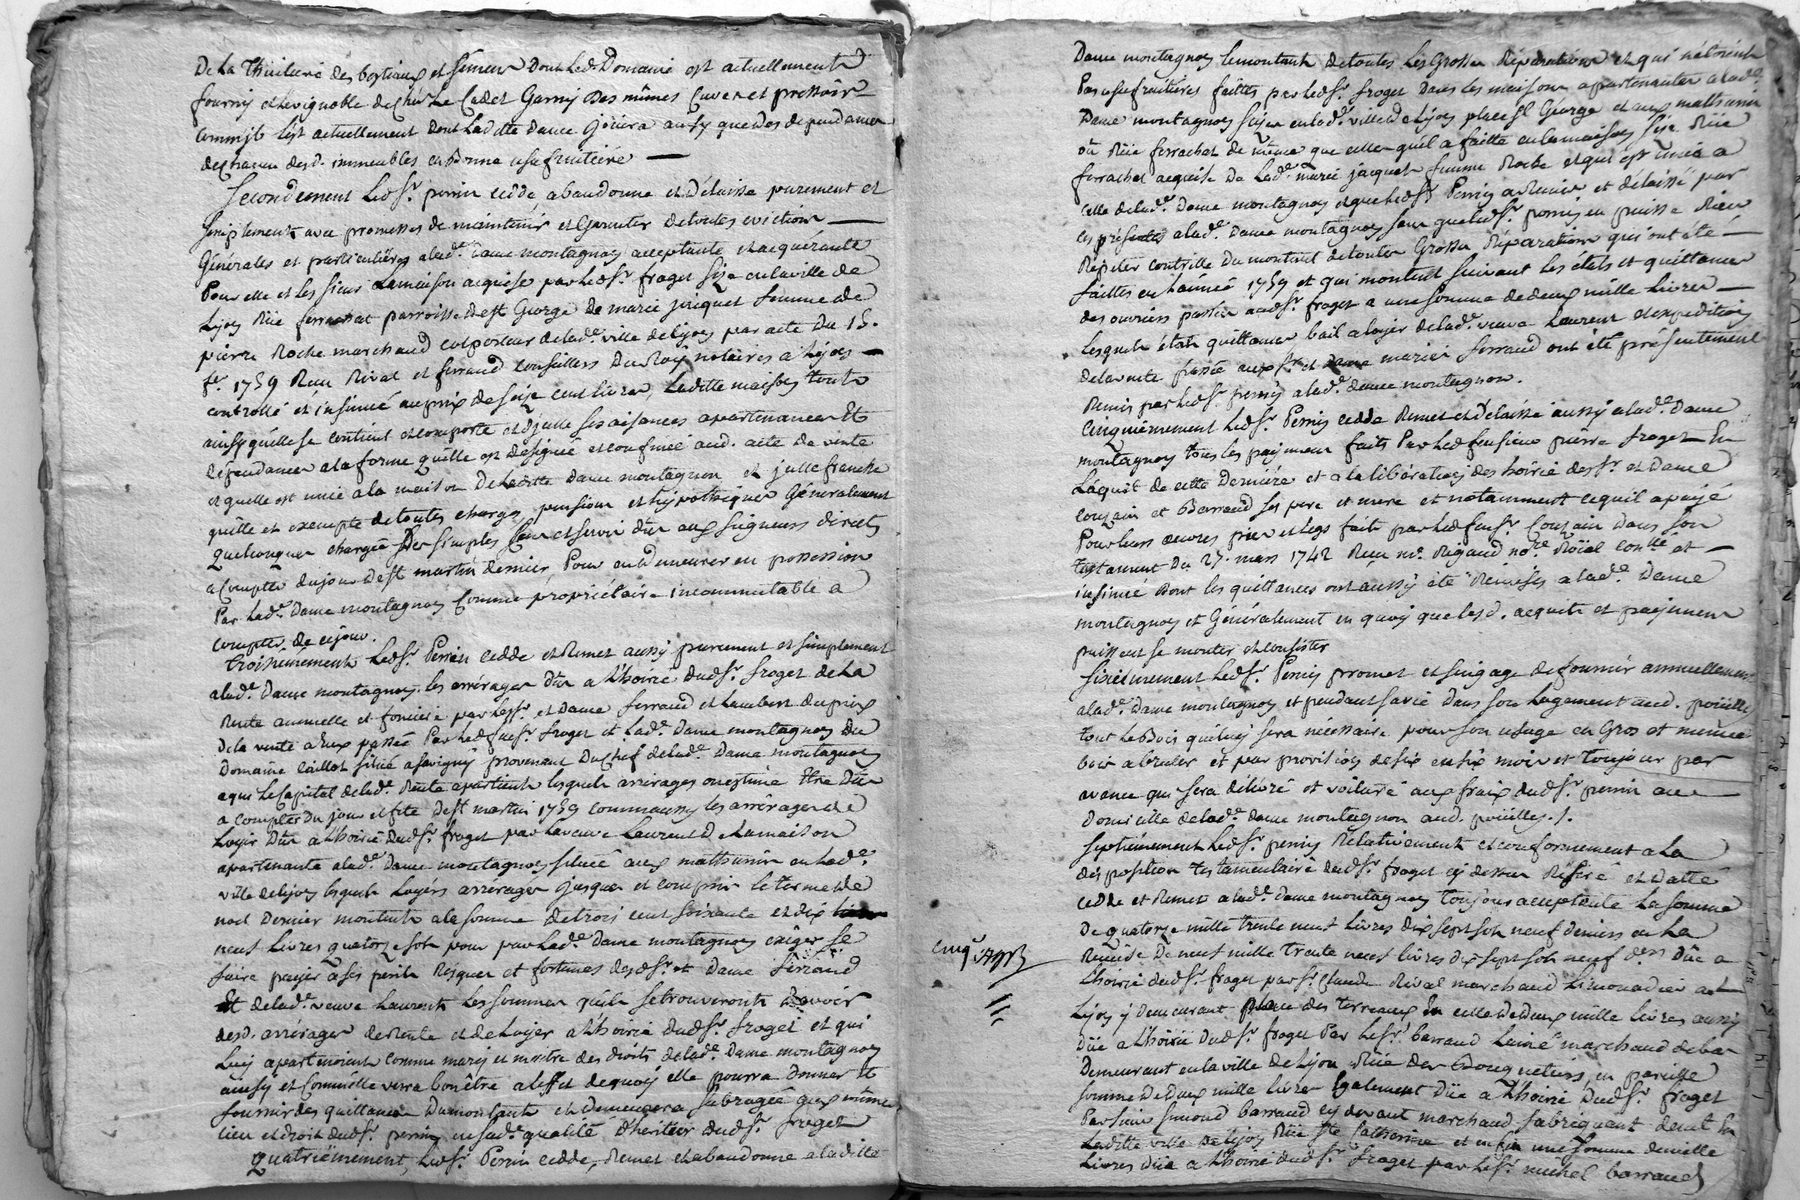 De La Thuilerie des bestiaux et semens Dont led. Domaine est actuellement
fourny et le vignoble de Cadet Garny Des mêmes Cuves et pressoir
comme il est actuellement Dont Laditte Dame Joüira ainsy que des dependances
de chacun desd. immeubles en bonne usufruitiére —
Secondement Led. Sr. perrin cedde abandonne et Délaisse purement et
simplement avec promesses de maintenir et Garantir de toutes evictions —
Générales et particuliéres a lad.e Dame montagnon acceptante et acquérante
Pour elle et les siens La maison acquise par led. Sr. froget Size en la ville de
Lyon Rüe ferrachat parroisse de St. George de marie jacquet femme de
pierre Roche marchand colporteur de lad.e ville de Lyon par acte Du 15.
1759 Reçu Rival et ferrand conseillers Du Roy notaires a Lyon —
controllé et insinué au prix de seize cent livres, Laditte maison tout
ainsy quelle se contient et comporte et jusse ses aisances apartenances Et
Dépendances a la forme quelle est désignée et confinée aud. acte de vente
et quelle est unie a la maison De laditte Dame montagnon et jusse franche
quitte et exempte de toutes charges pension et hipothéques Généralement
quelconques chargée des simples Cens et servis dûs aux seigneurs directs
a Compter du jour de St. martin dernier Pour en demeurer en possession
Par lad.e Dame montagnon Comme propriétaire incommutable a
compter de ce jour.
Troisiémement Led. Sr. Perrin cedde et Remet aussy purement et simplement
a lad.e Dame montagnon les arrérages Dûs a L'hoirie dud. Sr. froget de La
Rente annuelle et fonciere par les Srs. et Dame ferrand et Lambert du prix
De la vente a Eux passée Par led. feu Sr. froget et Lad.e Dame montagnon Du
Domaine Caillot situé a Savigny provenant Du Chef de lad.e Dame montagnon
a qui Le Capital de lad.e Rente apartient lesquels arrérages ont estimé Etre Dûs
a compter Du jour et fête de St. martin 1759 comm'aussy les arrérages de
Loyer Dûs a L'hoirie Dud. Sr. froget par La veuve Laurent De la maison
apartenante a lad.e Dame montagnon située aux mathurins en lad.e
ville de Lyon lesquels Loyers arrerages jusques et compris le terme de
noel Dernier montent a la somme de trois cent soixante et dix
neuf Livres quatorze sols pour par Lad.e Dame montagnon exiger se
faire payer a ses perils Risques et fortunes desd. Srs. et Dame ferrand
Et de lad.e veuve Laurent Les sommes qu'ils se trouveront Devoir
desd. arrérages de Rente et de Loyer a L'hoirie dud. Sr. froget et qui
Luy apartenoient comme mary et maitre des droits de lad.e Dame montagnon
ainsy et Comm'elle verra bon être a l'effet de quoy elle pourra donner Et
fournir des quittances Du montant et Demeurera subrogée aux mêmes
lieu et droit dud. Sr. perrin en sad.e qualité d'heritier dud. Sr. froget
Quatriémement, Led. Sr. Perrin cedde, Remet et abandonne a laditte
Dame montagnon le montant de toutes Les Grosses Réparations et qui n'étoient
Pas usufruitiéres faittes par led. Sr. froget Dans les maisons apartenantes a lad.e
Dame montagnon sizes en lad.e ville de Lyon place St. George et aux mathurins
où Rüe ferrachat de même que celles quil a faitte en la maison size Rüe
ferrachat acquise De Lad.e marie jacquet femme Roche et qui est unie a
celle de lad.e Dame montagnon et que led. Sr. Perrin a Remis et délaissé par
ces présentes a lad.e Dame montagnon sans que led. Sr. perrin en puisse Rien
Répéter contr'elle Du montant de toutes Grosses Réparations qui ont été —
faittes en l'année 1759 et qui montent suivant les états et quittances
des ouvriers par led. Sr. froget a une somme de deux mille livres —
Lesquels états quittances bail a loyer de lad.e veuve Laurent et expedition
de la vente passée aux Srs. et dame mariés ferrand ont été présentement
Remis par led. Sr. perrin a lad.e dame montagnon.
Cinquiémement Led. Sr. Perrin cedde Remet et Délaisse aussy a lad.e Dame
montagnon tous les payemens faits Par led. feu sieur pierre froget En
L'aquit de cette Derniére et a la libération des hoirie des Sr. et Dame
Couzain et Barraud ses pere et mere et notamment ce quil a payé
Pour leurs œuvres pies et legs faits par led. feu Sr. Couzain Dans son
testament Du 27. mars 1742 Reçu me. Rigaud no.re Roïal con.llé et —
insinué Dont les quittances ont aussy été Remises a lad.e Dame
montagnon et Généralement en quoy que lesd. acquits et payemens
puissent se monter et consister
Sixiémement Led. Sr. Perrin promet et s'engage de fournir annuellement
a lad.e Dame montagnon et pendant sa vie Dans son Logement aud. poüilly
tout Le Bois quil luy sera nécessaire pour son usage en Gros et menüe
bois a bruler et par provision de six en six mois et toujours par
avance qui sera délivré et voituré aux fraix dud. Sr. perrin au —
Domicille de lad.e Dame montagnon aud. poüilly./.
Septiémement Led. Sr. perrin Rélativement et conformement a La
disposition testamentaire dud. Sr. froget cy dessus Référé et Datté
cedde et Remet a lad.e Dame montagnon toujours acceptante La somme
De quatorze mille trente neuf Livres dix sept sols neuf deniers en La
Remise De neuf mille trente neuf livres dix sept sols neuf den.s Düe a
L'hoirie dud. Sr. froget par Sr. Claude Rival marchand Limonadier a
Lyon y demeurant place des terreaux En celle de Deux mille livres aussy
Düe a L'hoirie Dud. Sr. froget Par le Sr. barraud L'ainé marchand de bas
Demeurant en la ville de Lyon Rüe des Bouquetiers, en pareille
somme De Deux mille livres Egalement Düe a L'hoirie Dud. Sr. froget
Par Sieur Simond barraud cy devant marchand fabriquant de
Laditte ville de Lyon Rüe Ste Catherine et enfin une somme de mille
Livres Düe a L'hoirie dud. Sr. froget par Le Sr. michel barraud